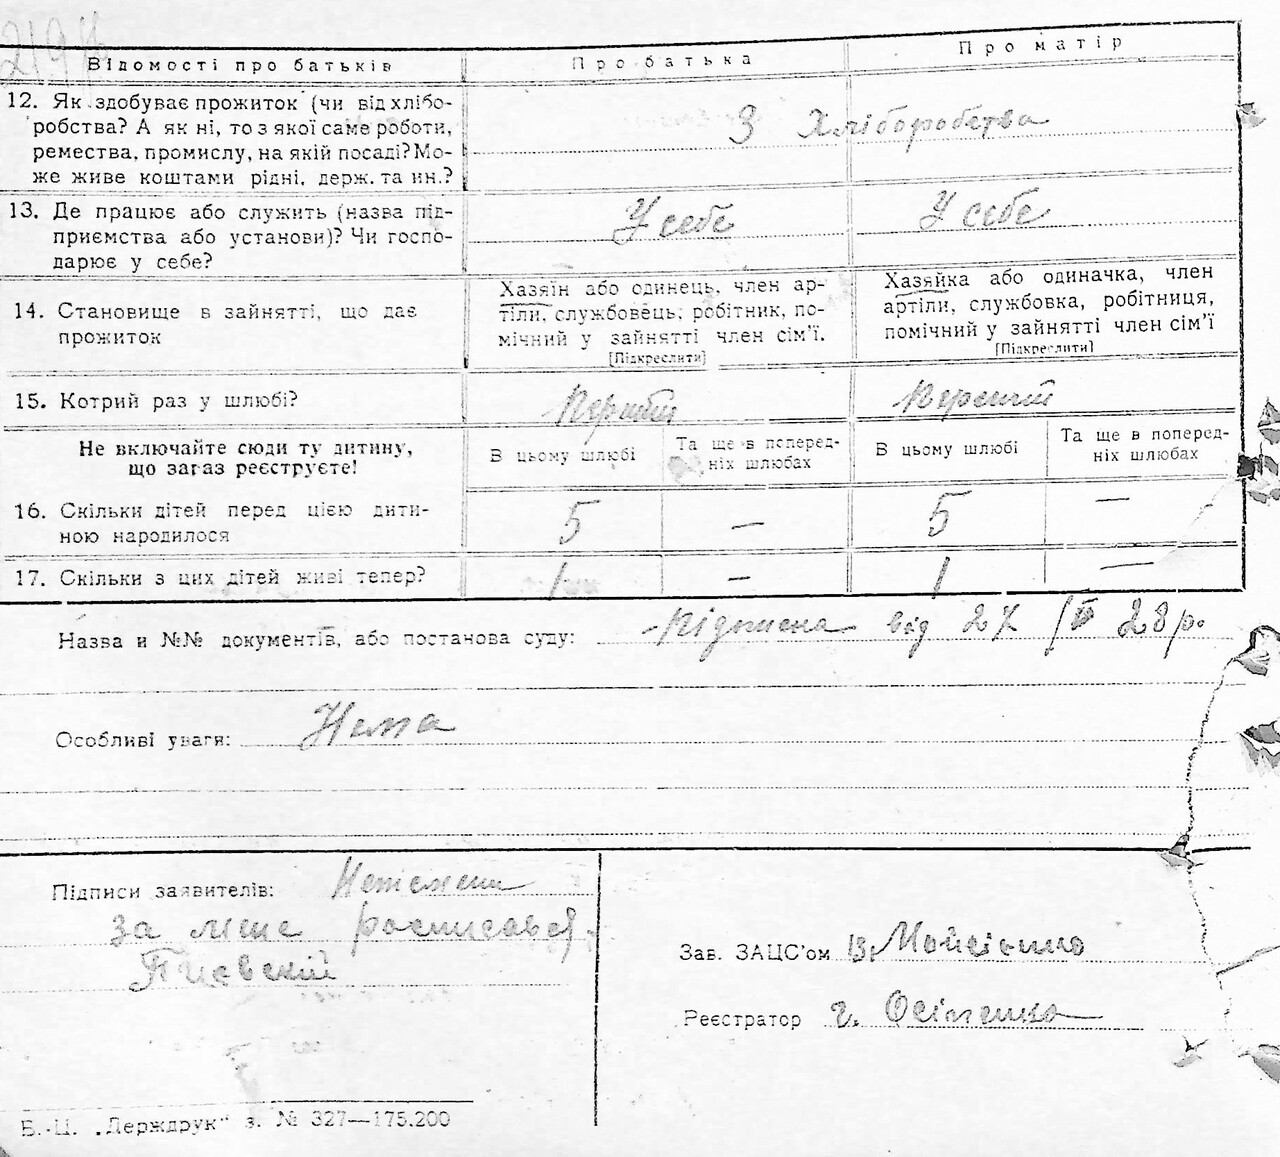 219
Відомості про батьків
Про батька
Про матір
12. Як здобуває прожиток (чи від хлібо-
робства? А як ні, то з якої саме роботи,
ремества, промислу, на якій посаді? Мо-
же живе коштами рідні, держ. та ин.?
З Хліборобства
13. Де працює або служить (назва під-
приємства або установи)? Чи госпо-
дарює у себе?
У себе
У себе
14. Становище в зайнятті, що дає
прожиток
Хазяїн або одинець, член ар-
тіли, службовець, робітник, по-
мічний у зайнятті член сім'ї.
[Підкреслити]
Хазяйка або одиначка, член
артіли, службовка, робітниця,
помічний у зайнятті член сім'ї
[Підкреслити]
15. Котрий раз у шлюбі?
Перший
Перший
Не включайте сюди ту дитину,
що зараз реєструєте!
В цьому шлюбі
Та ще в поперед-
ніх шлюбах
В цьому шлюбі
Та ще в поперед-
ніх шлюбах
16. Скільки дітей перед цією дити-
ною народилося
5 — 5 —
17. Скільки з цих дітей живі тепер?
1 — 1 —
Назва и №№ документів, або постанова суду: від 27 28 р.
Особливі уваги: Нема
Підписи заявителів:
За мене росписався
Зав. ЗАЦС'ом
Реєстратор г. Осіпенко
Б.-Ц. „Держдрук" з. № 327—175.200